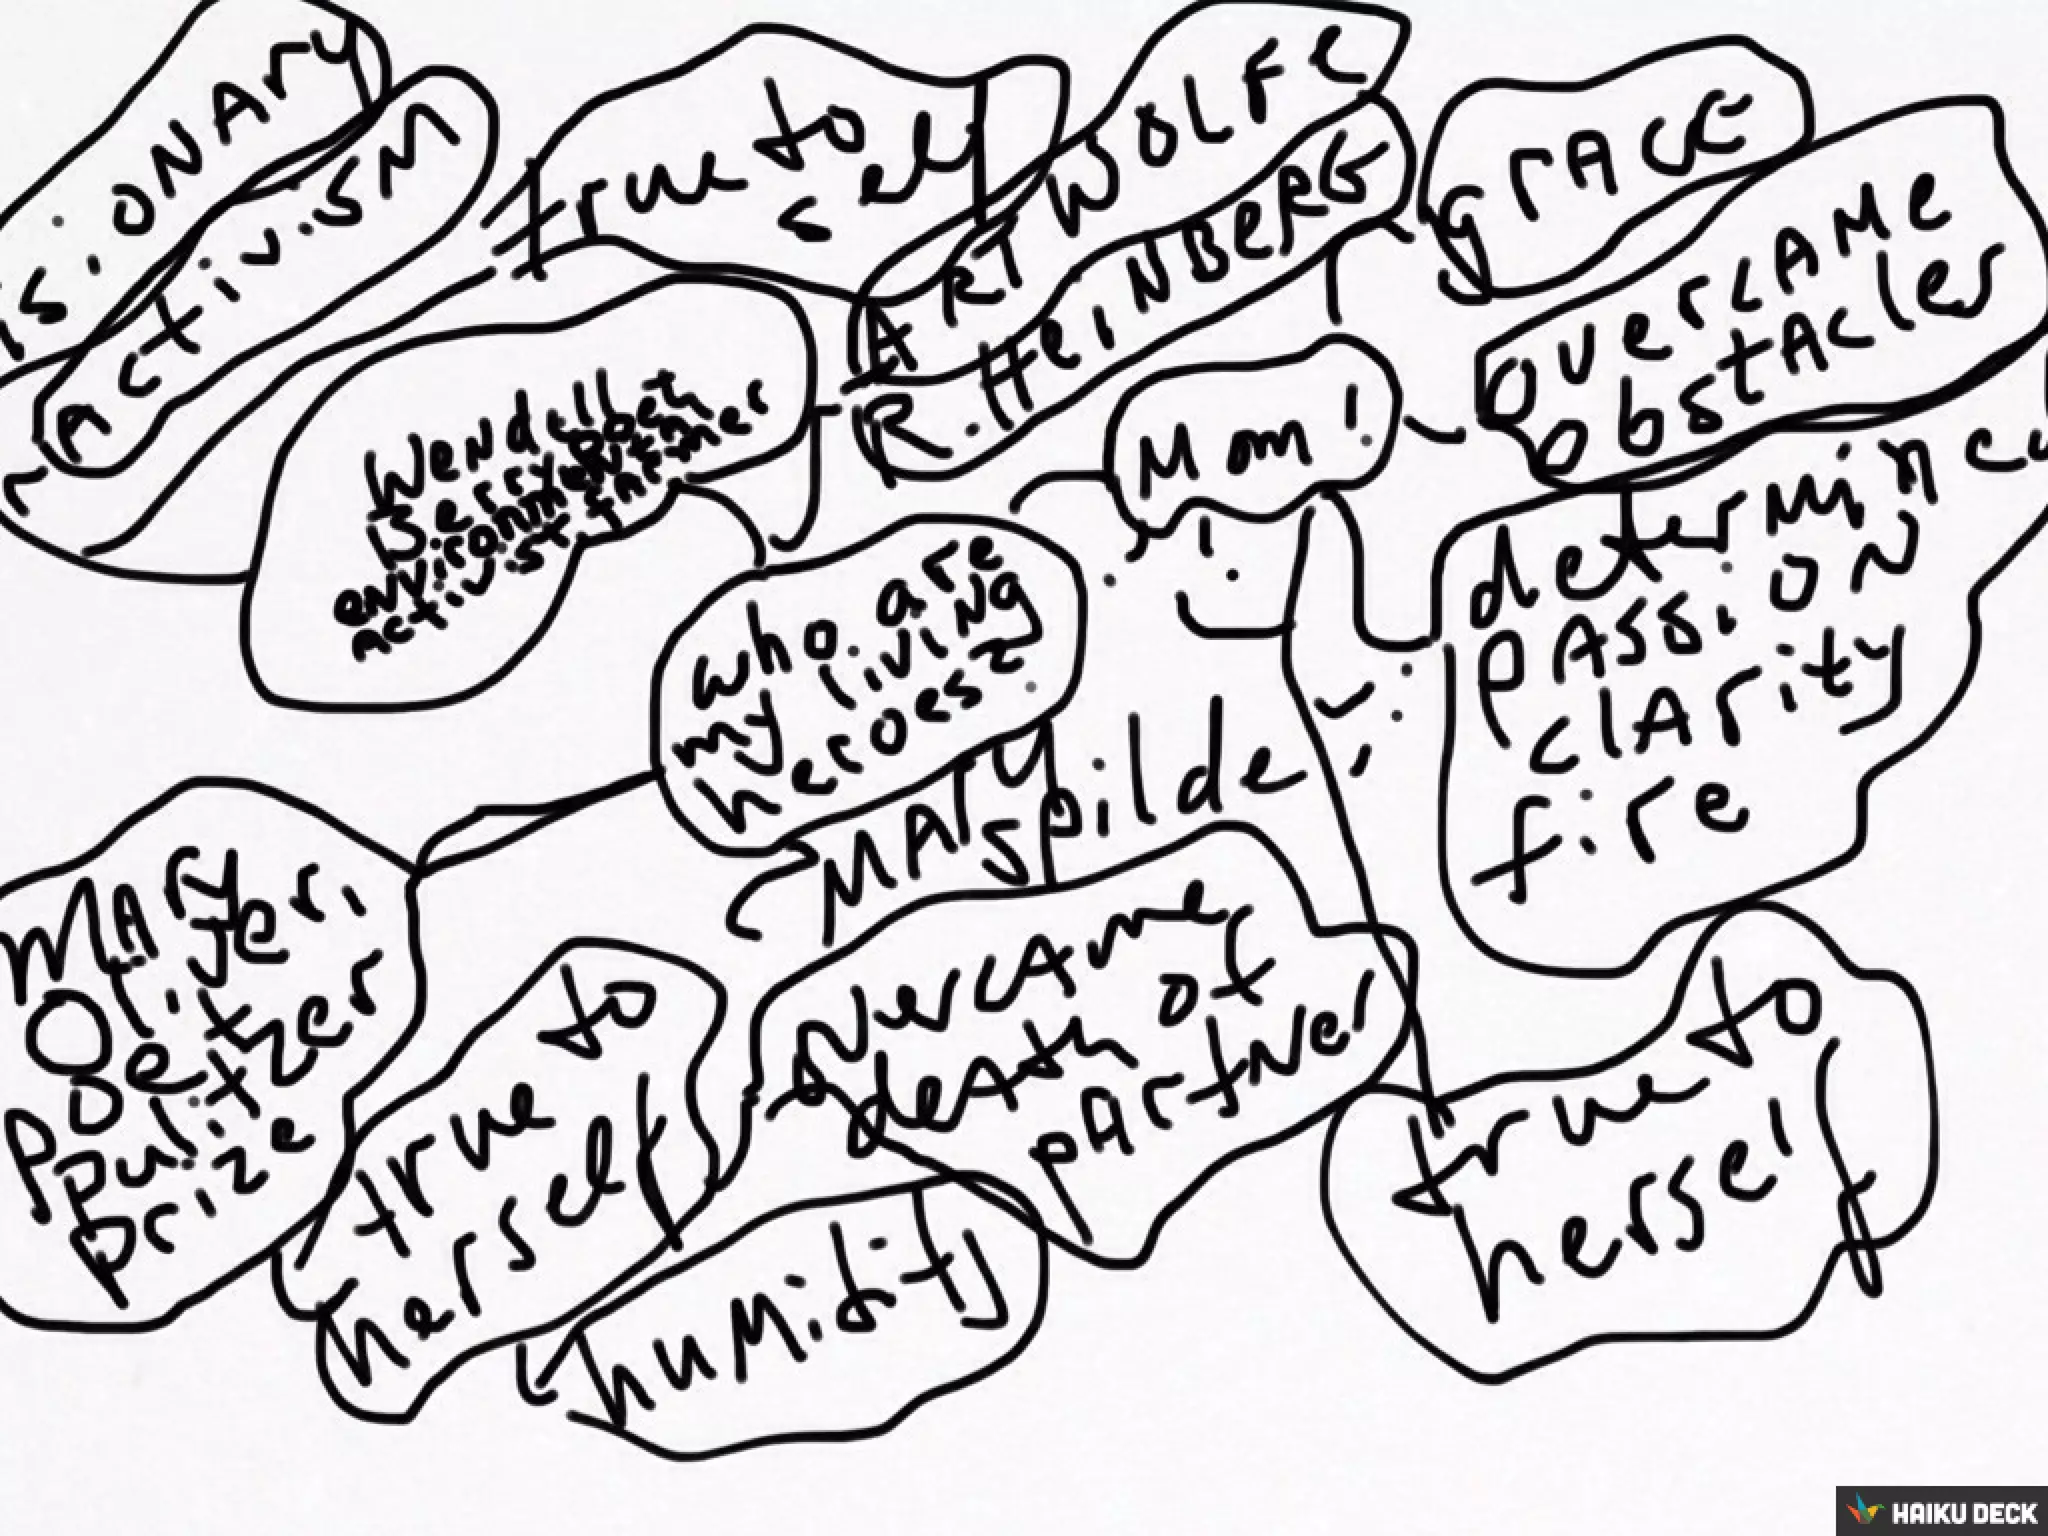 is.onary
activism
true to
self
ART WOLFE
R. HeiNBERG
grace
overcame
obstacles
Wendell
Berry poet
environmentl
activist farmer
Mom!
determin
passion
clarity
fire
who are
my living
heroes?
MAry Spilde
MARY
Oliver,
poet
pulitzer
prize
true to
herself
overcame
death of
partner
humidity
true to
herself
HAIKU DECK